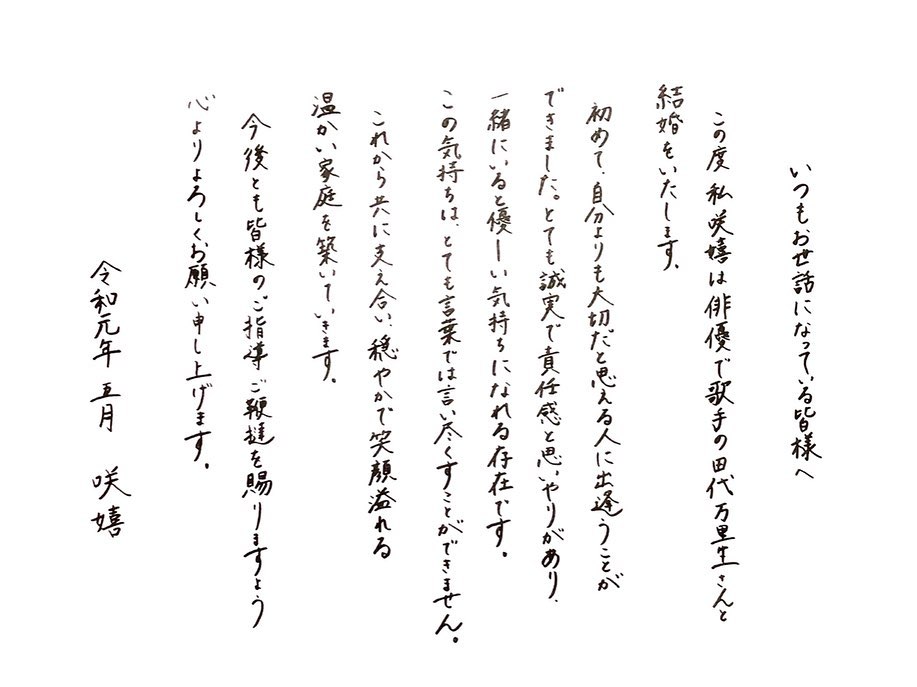 いつもお世話になっている皆様へ
この度 私 咲嬉は俳優で歌手の田代万里生さんと
結婚をいたします。
初めて、自分よりも大切だと思える人に出逢うことが
できました。とても誠実で責任感と思いやりがあり、
一緒にいると優しい気持ちになれる存在です。
この気持ちは、とても言葉では言い尽くすことができません。
これから共に支え合い、穏やかで笑顔溢れる
温かい家庭を築いていきます。
今後とも皆様のご指導ご鞭撻を賜りますよう
心よりよろしくお願い申し上げます。
令和元年 五月 咲嬉